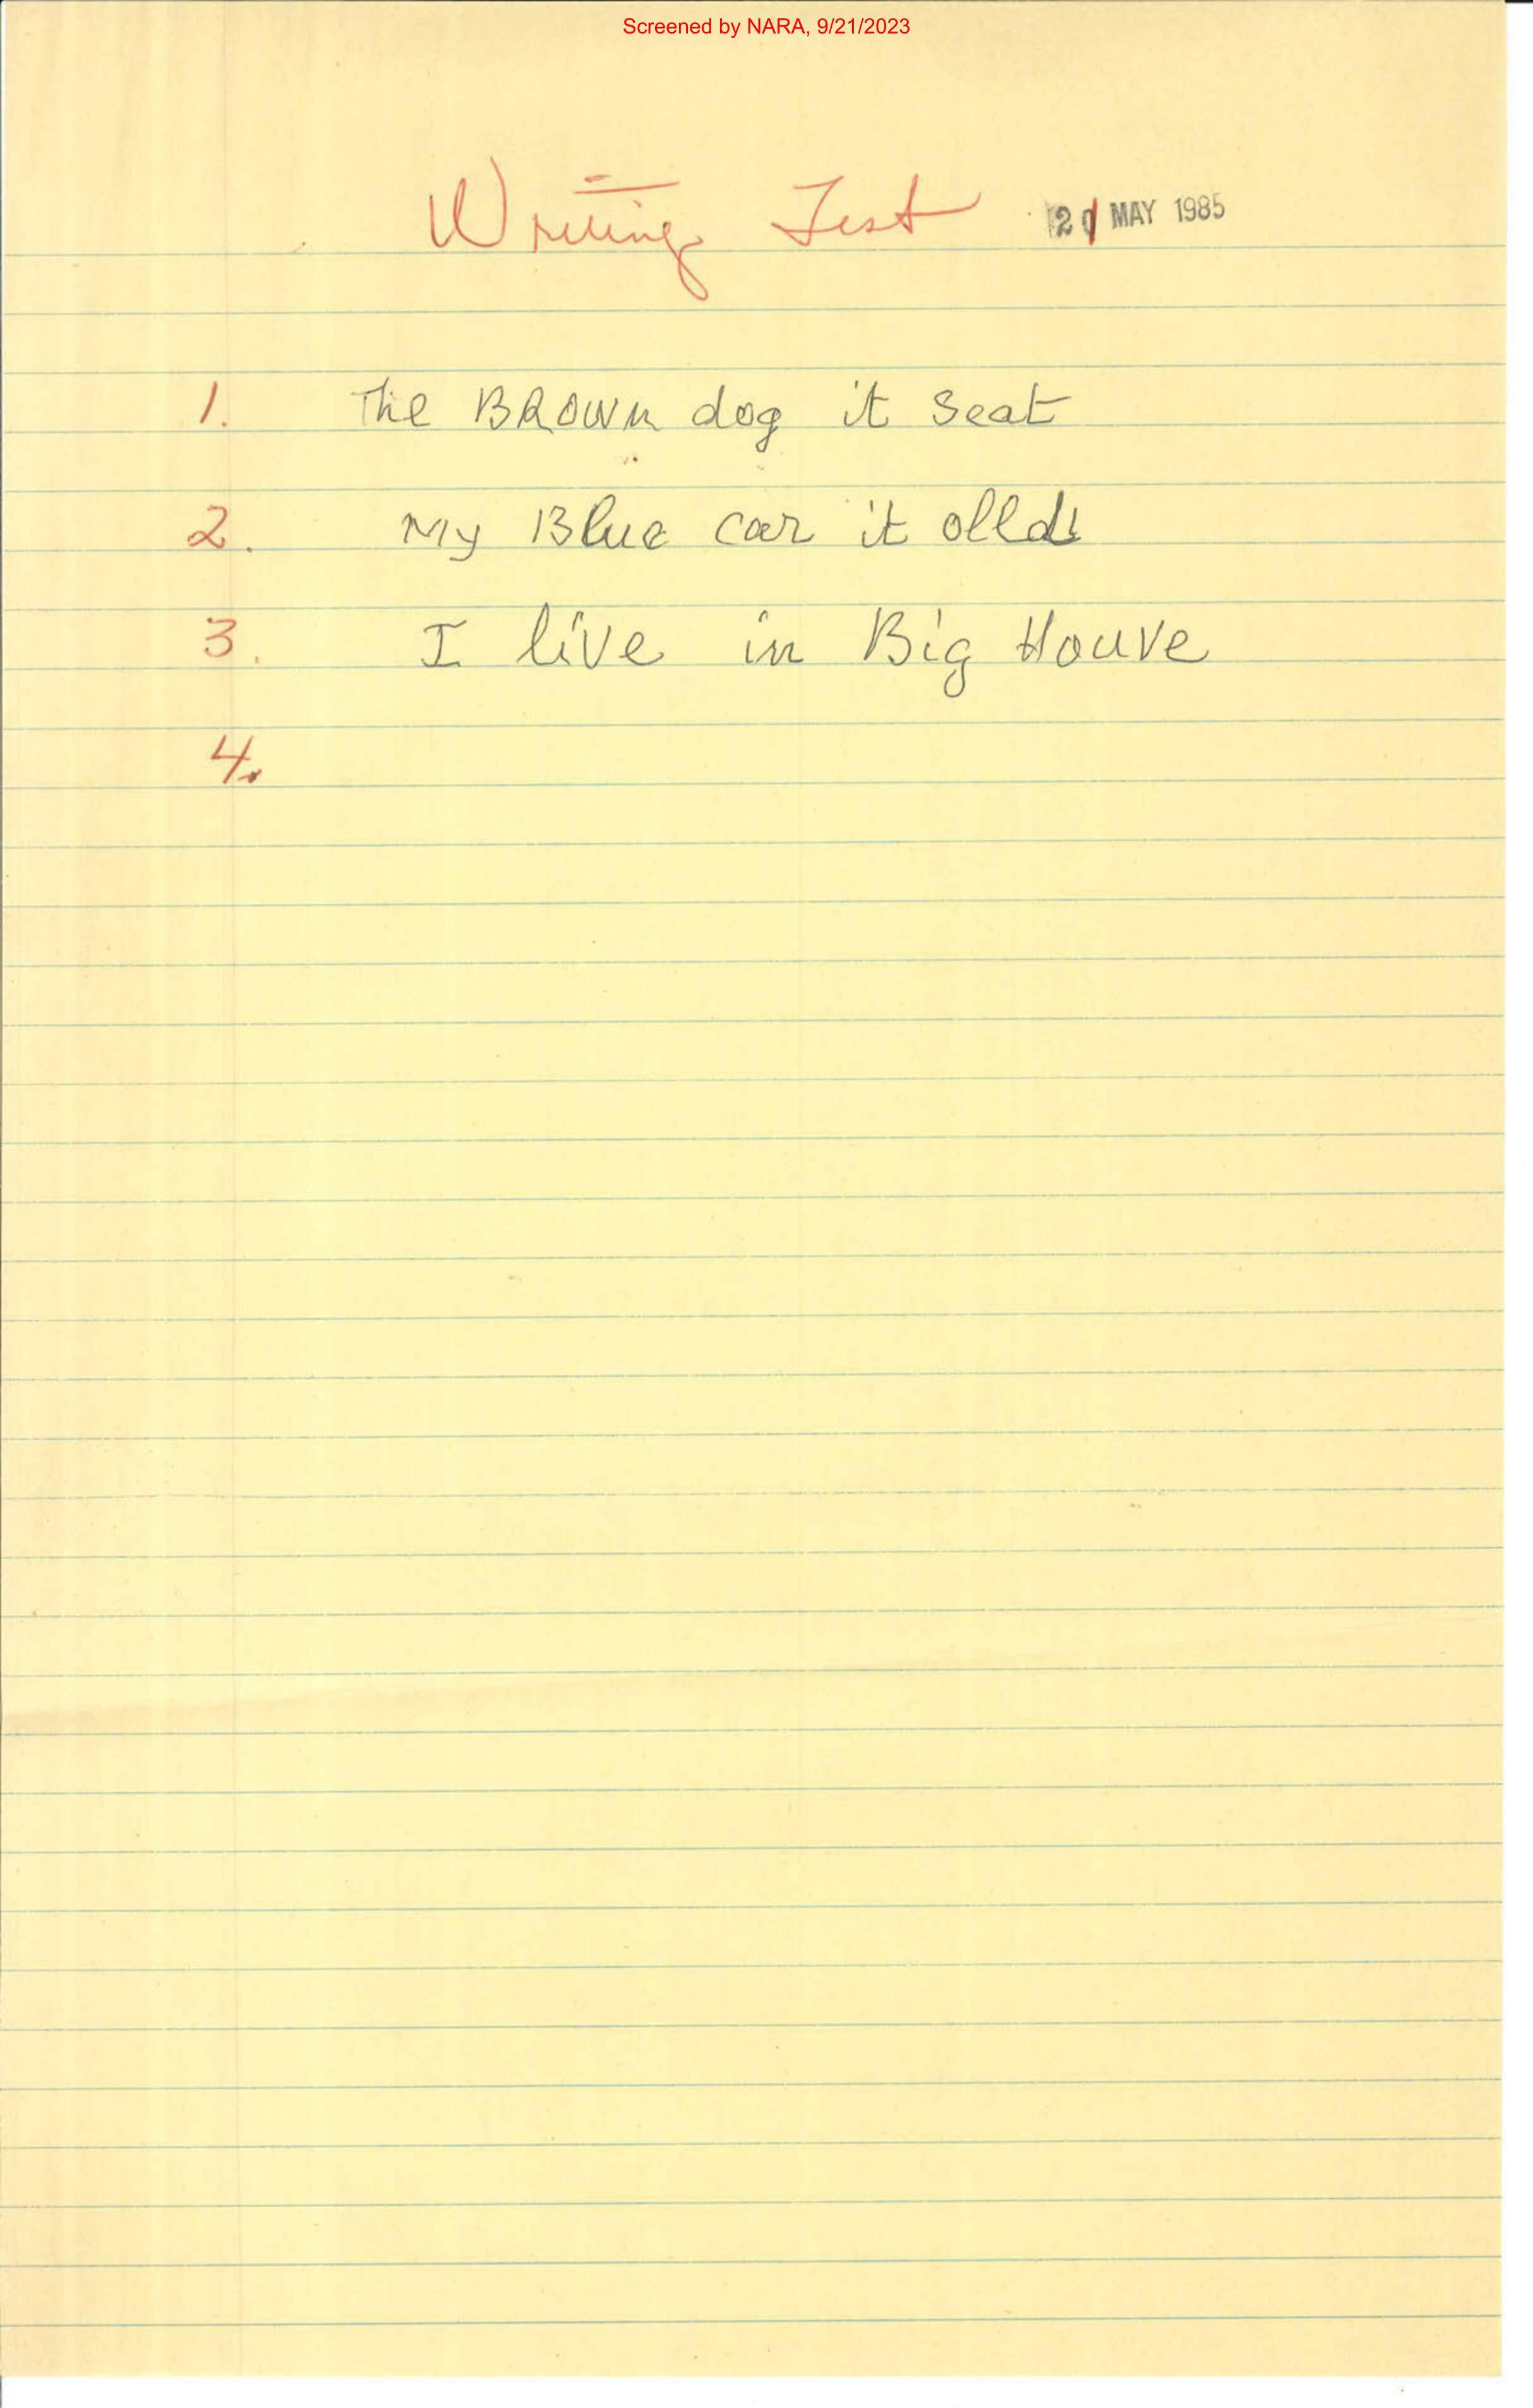 Screened by NARA, 9/21/2023
Writing Test 21 MAY 1985
1. The BROWN dog it seat
2. My Blue car it olld
3. I live in Big Houve
4.